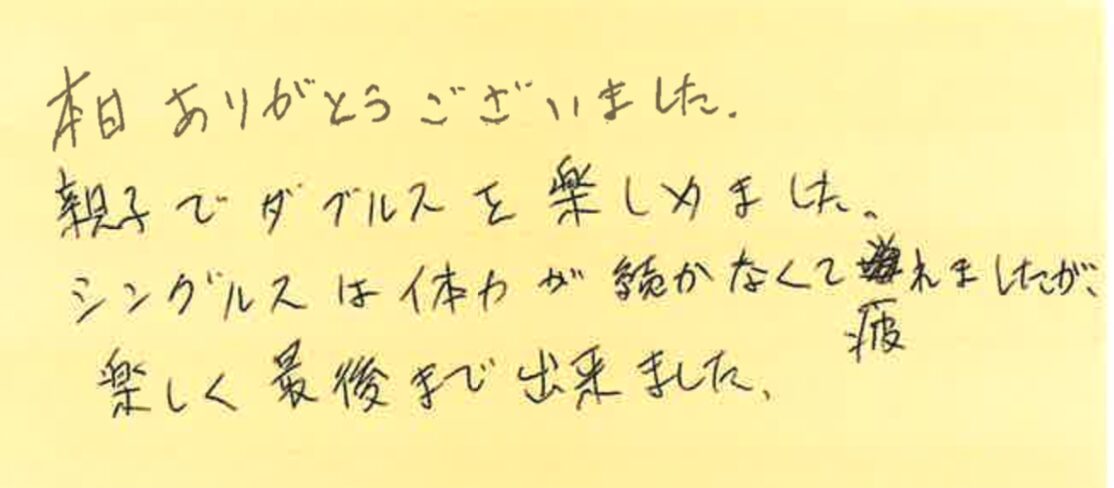 本日ありがとうございました。
親子でダブルスを楽しめました。
シングルスは体力が続かなくて疲れましたが、
楽しく最後まで出来ました、